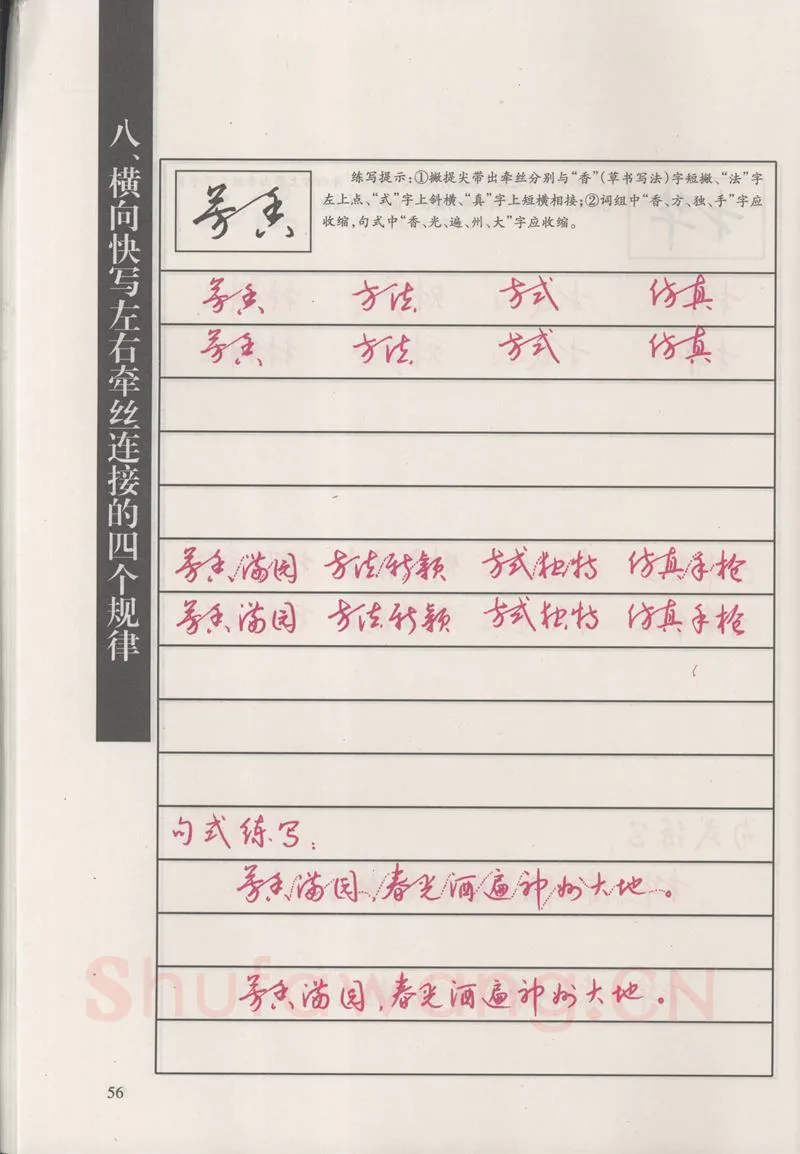 八、横向快写左右牵丝连接的四个规律
芳香
练写提示:①撇提尖带出牵丝分别与“香”(草书写法)字短撇、“法”字
左上点、“式”字上斜横、“真”字上短横相接;②词组中“香、方、独、手”字应
收缩,句式中“香、光、遍、州、大”字应收缩。
芳香 方法 方式 仿真
芳香 方法 方式 仿真
芳香满园 方法新颖 方式独特 仿真手枪
芳香满园 方法新颖 方式独特 仿真手枪
句式练写:
芳香满园,春光洒遍神州大地。
芳香满园,春光洒遍神州大地。
Shufawang.CN
56